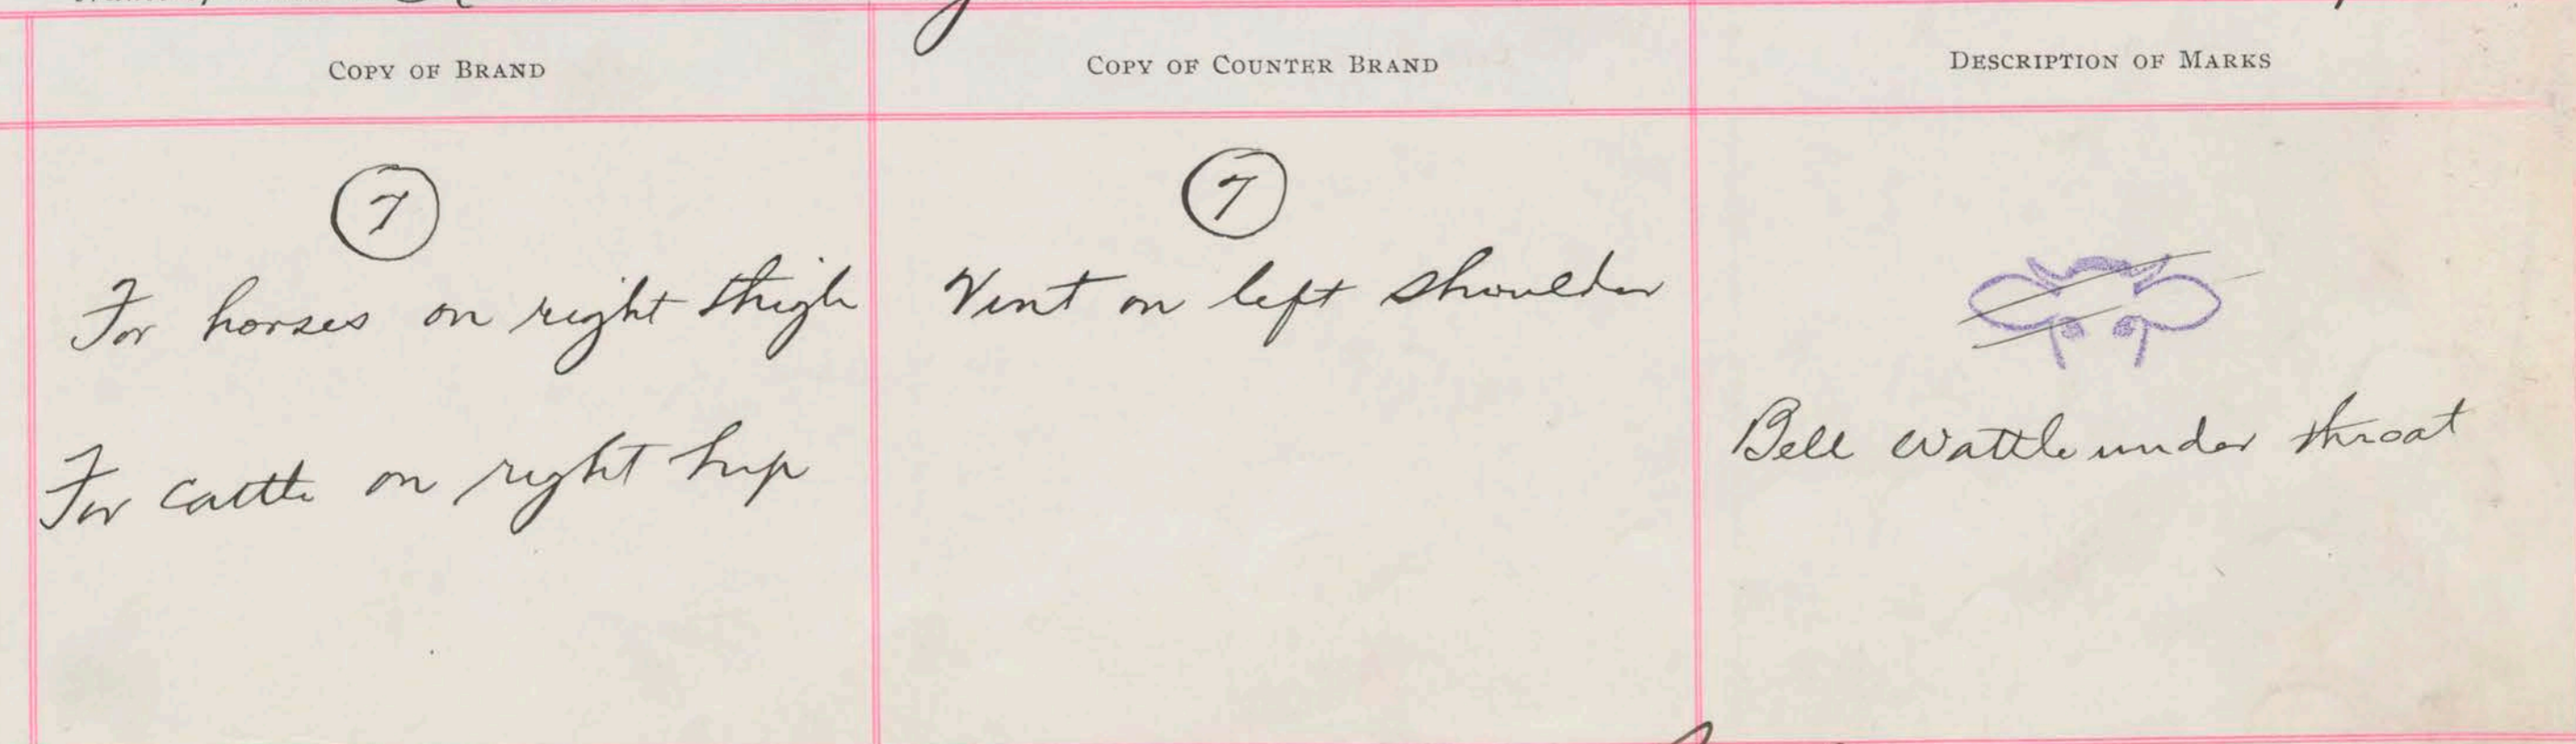 COPY OF BRAND
COPY OF COUNTER BRAND
DESCRIPTION OF MARKS
7
For horses on right thigh
For cattle on right hip
7
Vent on left shoulder
Bell wattle under throat